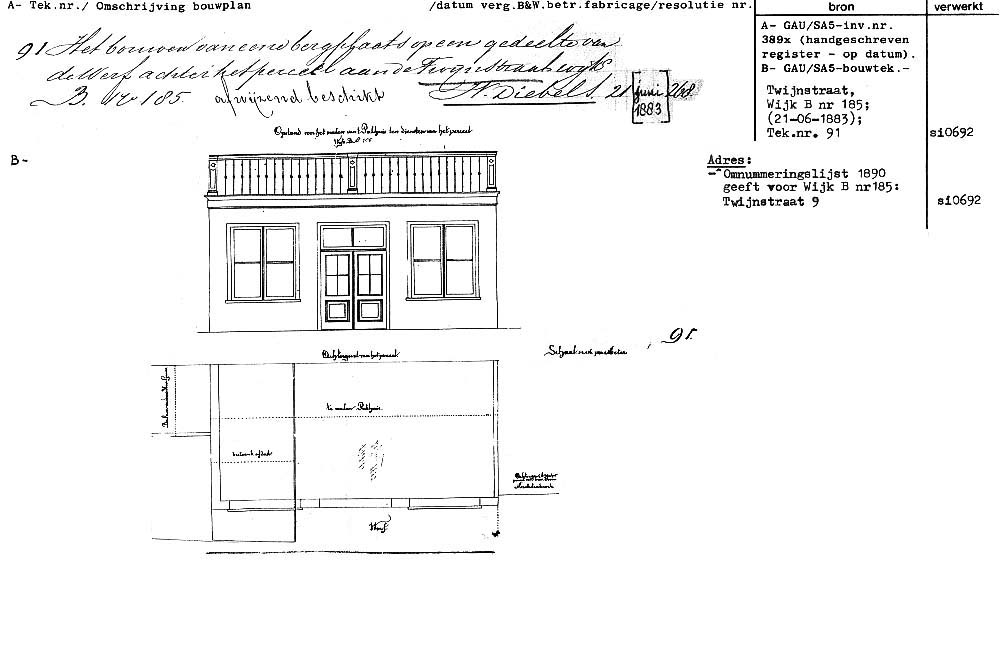 A- Tek.nr./ Omschrijving bouwplan /datum verg.B&W.betr.fabricage/resolutie nr.
bron
verwerkt
91 Het bouwen van eene bergplaats op een gedeelte van
de Werf achter het perceel aan de Twijnstraat wijk
B. No 185. afwijzend beschikt H. Diebels. 21 juni 1883 268
A- GAU/SA5-inv.nr.
389x (handgeschreven
register - op datum).
B- GAU/SA5-bouwtek.-
Twijnstraat,
Wijk B nr 185;
(21-06-1883);
Tek.nr. 91
si0692
Adres:
- Omnummeringslijst 1890
geeft voor Wijk B nr185:
Twijnstraat 9
si0692
B-
Opstand van het maken van 't Pakhuis ten dienste van het perceel
91.
Achtergevel van het perceel
te maken Pakhuis
Werf